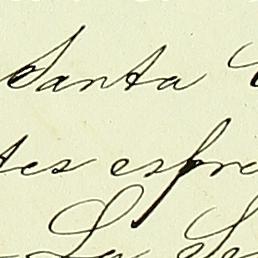 Santa
tes espre
La Se